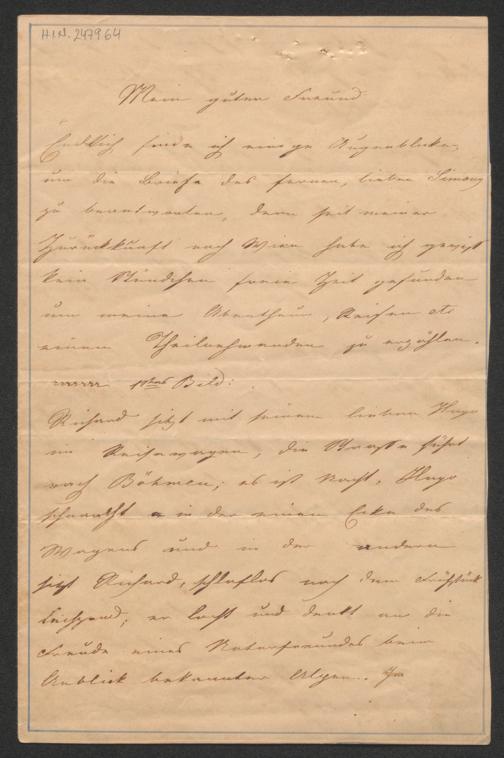 H.I.N. 247964
Mein guter Freund
Endlich finde ich einige Augenblicke,
um die Briefe des fernen, lieben Simony
zu beantworten, denn seit meiner
Zurückkunft nach Wien habe ich gewißt
kein Stündchen freie Zeit gefunden
um meine Abentheuer, Reisen etc
einem Theilnehmenden zu erzählen.
1tes Bild:
Richard sitzt mit seinem lieben Hugo
im Reisewagen, die Strasse führt
nach Böhmen; es ist Nacht, Hugo
schnarcht in der einen Ecke des
Wagens und in der andern
sitzt Richard, schlaflos nach dem Frühstück
lechzend; er lacht und denkt an die
Freude eines Naturfreundes beim
Anblick bekannter Alpen. Im